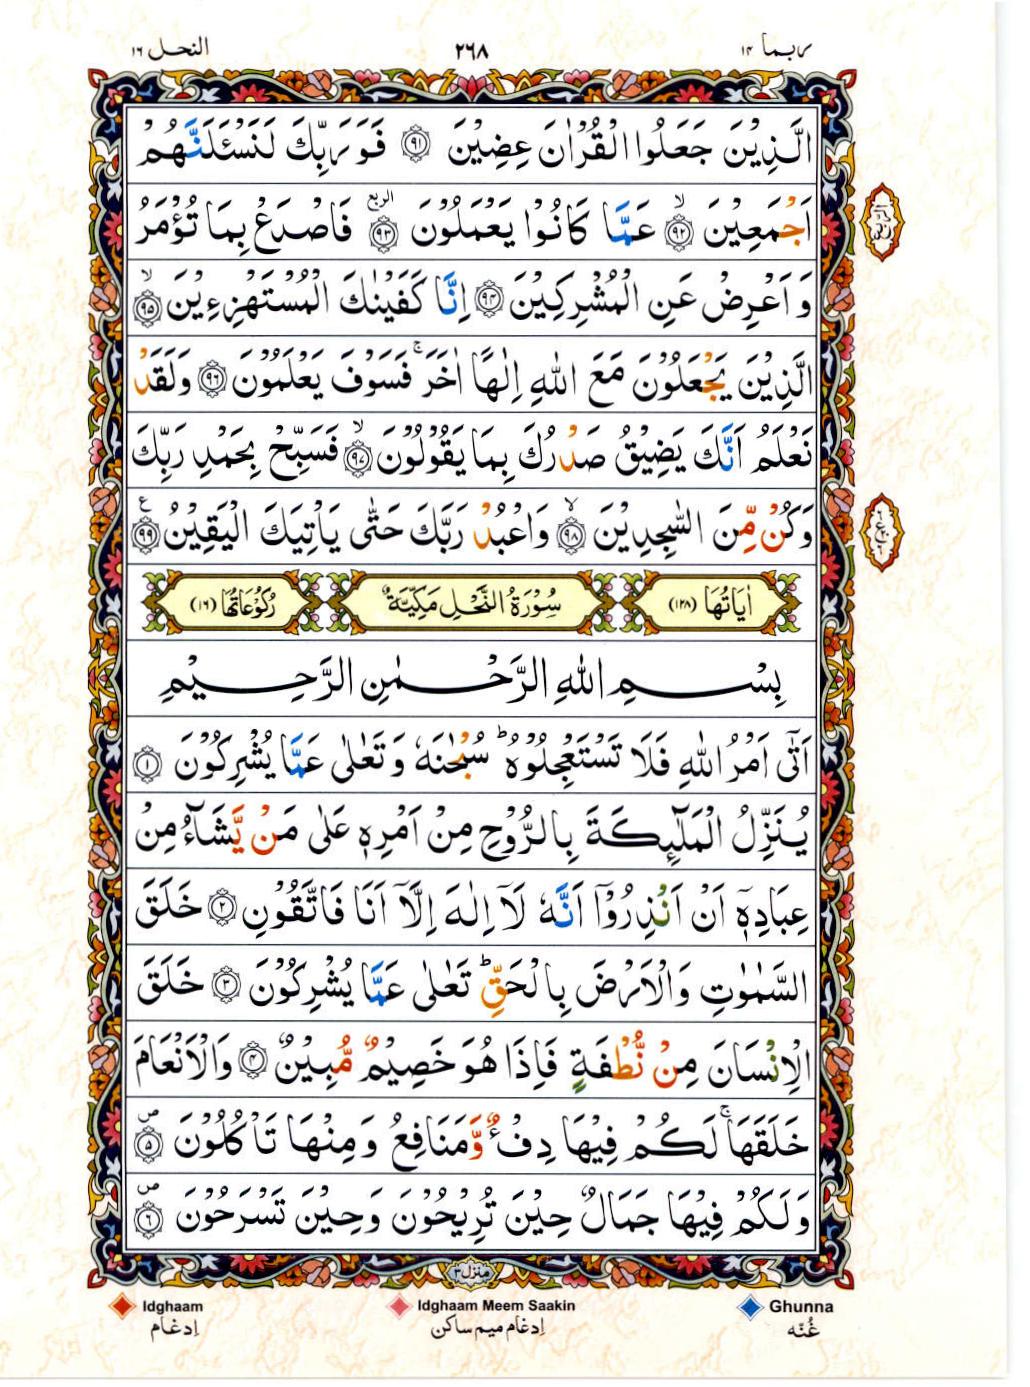 ربما ١٤
٢٦٨
النحل ١٦
الَّذِيْنَ جَعَلُوا الْقُرْاٰنَ عِضِيْنَ ٩١ فَوَرَبِّكَ لَنَسْـَٔلَنَّهُمْ
اَجْمَعِيْنَ ۙ ٩٢ عَمَّا كَانُوْا يَعْمَلُوْنَ الربع ٩٣ فَاصْدَعْ بِمَا تُؤْمَرُ
وَاَعْرِضْ عَنِ الْمُشْرِكِيْنَ ٩٤ اِنَّا كَفَيْنٰكَ الْمُسْتَهْزِءِيْنَ ۙ ٩٥
الَّذِيْنَ يَجْعَلُوْنَ مَعَ اللّٰهِ اِلٰهًا اٰخَرَ ۚ فَسَوْفَ يَعْلَمُوْنَ ٩٦ وَلَقَدْ
نَعْلَمُ اَنَّكَ يَضِيْقُ صَدْرُكَ بِمَا يَقُوْلُوْنَ ۙ ٩٧ فَسَبِّحْ بِحَمْدِ رَبِّكَ
وَكُنْ مِّنَ السّٰجِدِيْنَ ۙ ٩٨ وَاعْبُدْ رَبَّكَ حَتّٰى يَاْتِيَكَ الْيَقِيْنُ ع ٩٩
اٰيَاتُهَا (١٢٨) سُوْرَةُ النَّحْلِ مَكِّيَّةٌ رُكُوْعَاتُهَا (١٦)
بِسْمِ اللّٰهِ الرَّحْمٰنِ الرَّحِيْمِ
اَتٰٓى اَمْرُ اللّٰهِ فَلَا تَسْتَعْجِلُوْهُ ؕ سُبْحٰنَهٗ وَتَعٰلٰى عَمَّا يُشْرِكُوْنَ ١
يُنَزِّلُ الْمَلٰٓئِكَةَ بِالرُّوْحِ مِنْ اَمْرِهٖ عَلٰى مَنْ يَّشَآءُ مِنْ
عِبَادِهٖٓ اَنْ اَنْذِرُوْٓا اَنَّهٗ لَاۤ اِلٰهَ اِلَّاۤ اَنَا فَاتَّقُوْنِ ٢ خَلَقَ
السَّمٰوٰتِ وَالْاَرْضَ بِالْحَقِّ ؕ تَعٰلٰى عَمَّا يُشْرِكُوْنَ ٣ خَلَقَ
الْاِنْسَانَ مِنْ نُّطْفَةٍ فَاِذَا هُوَ خَصِيْمٌ مُّبِيْنٌ ٤ وَالْاَنْعَامَ
خَلَقَهَا ۚ لَكُمْ فِيْهَا دِفْءٌ وَّمَنَافِعُ وَمِنْهَا تَاْكُلُوْنَ ۪ ٥
وَلَكُمْ فِيْهَا جَمَالٌ حِيْنَ تُرِيْحُوْنَ وَحِيْنَ تَسْرَحُوْنَ ۪ ٦
منزل ٣
Idghaam Idghaam Meem Saakin Ghunna
إدغام إدغام ميم ساكن غُنّه